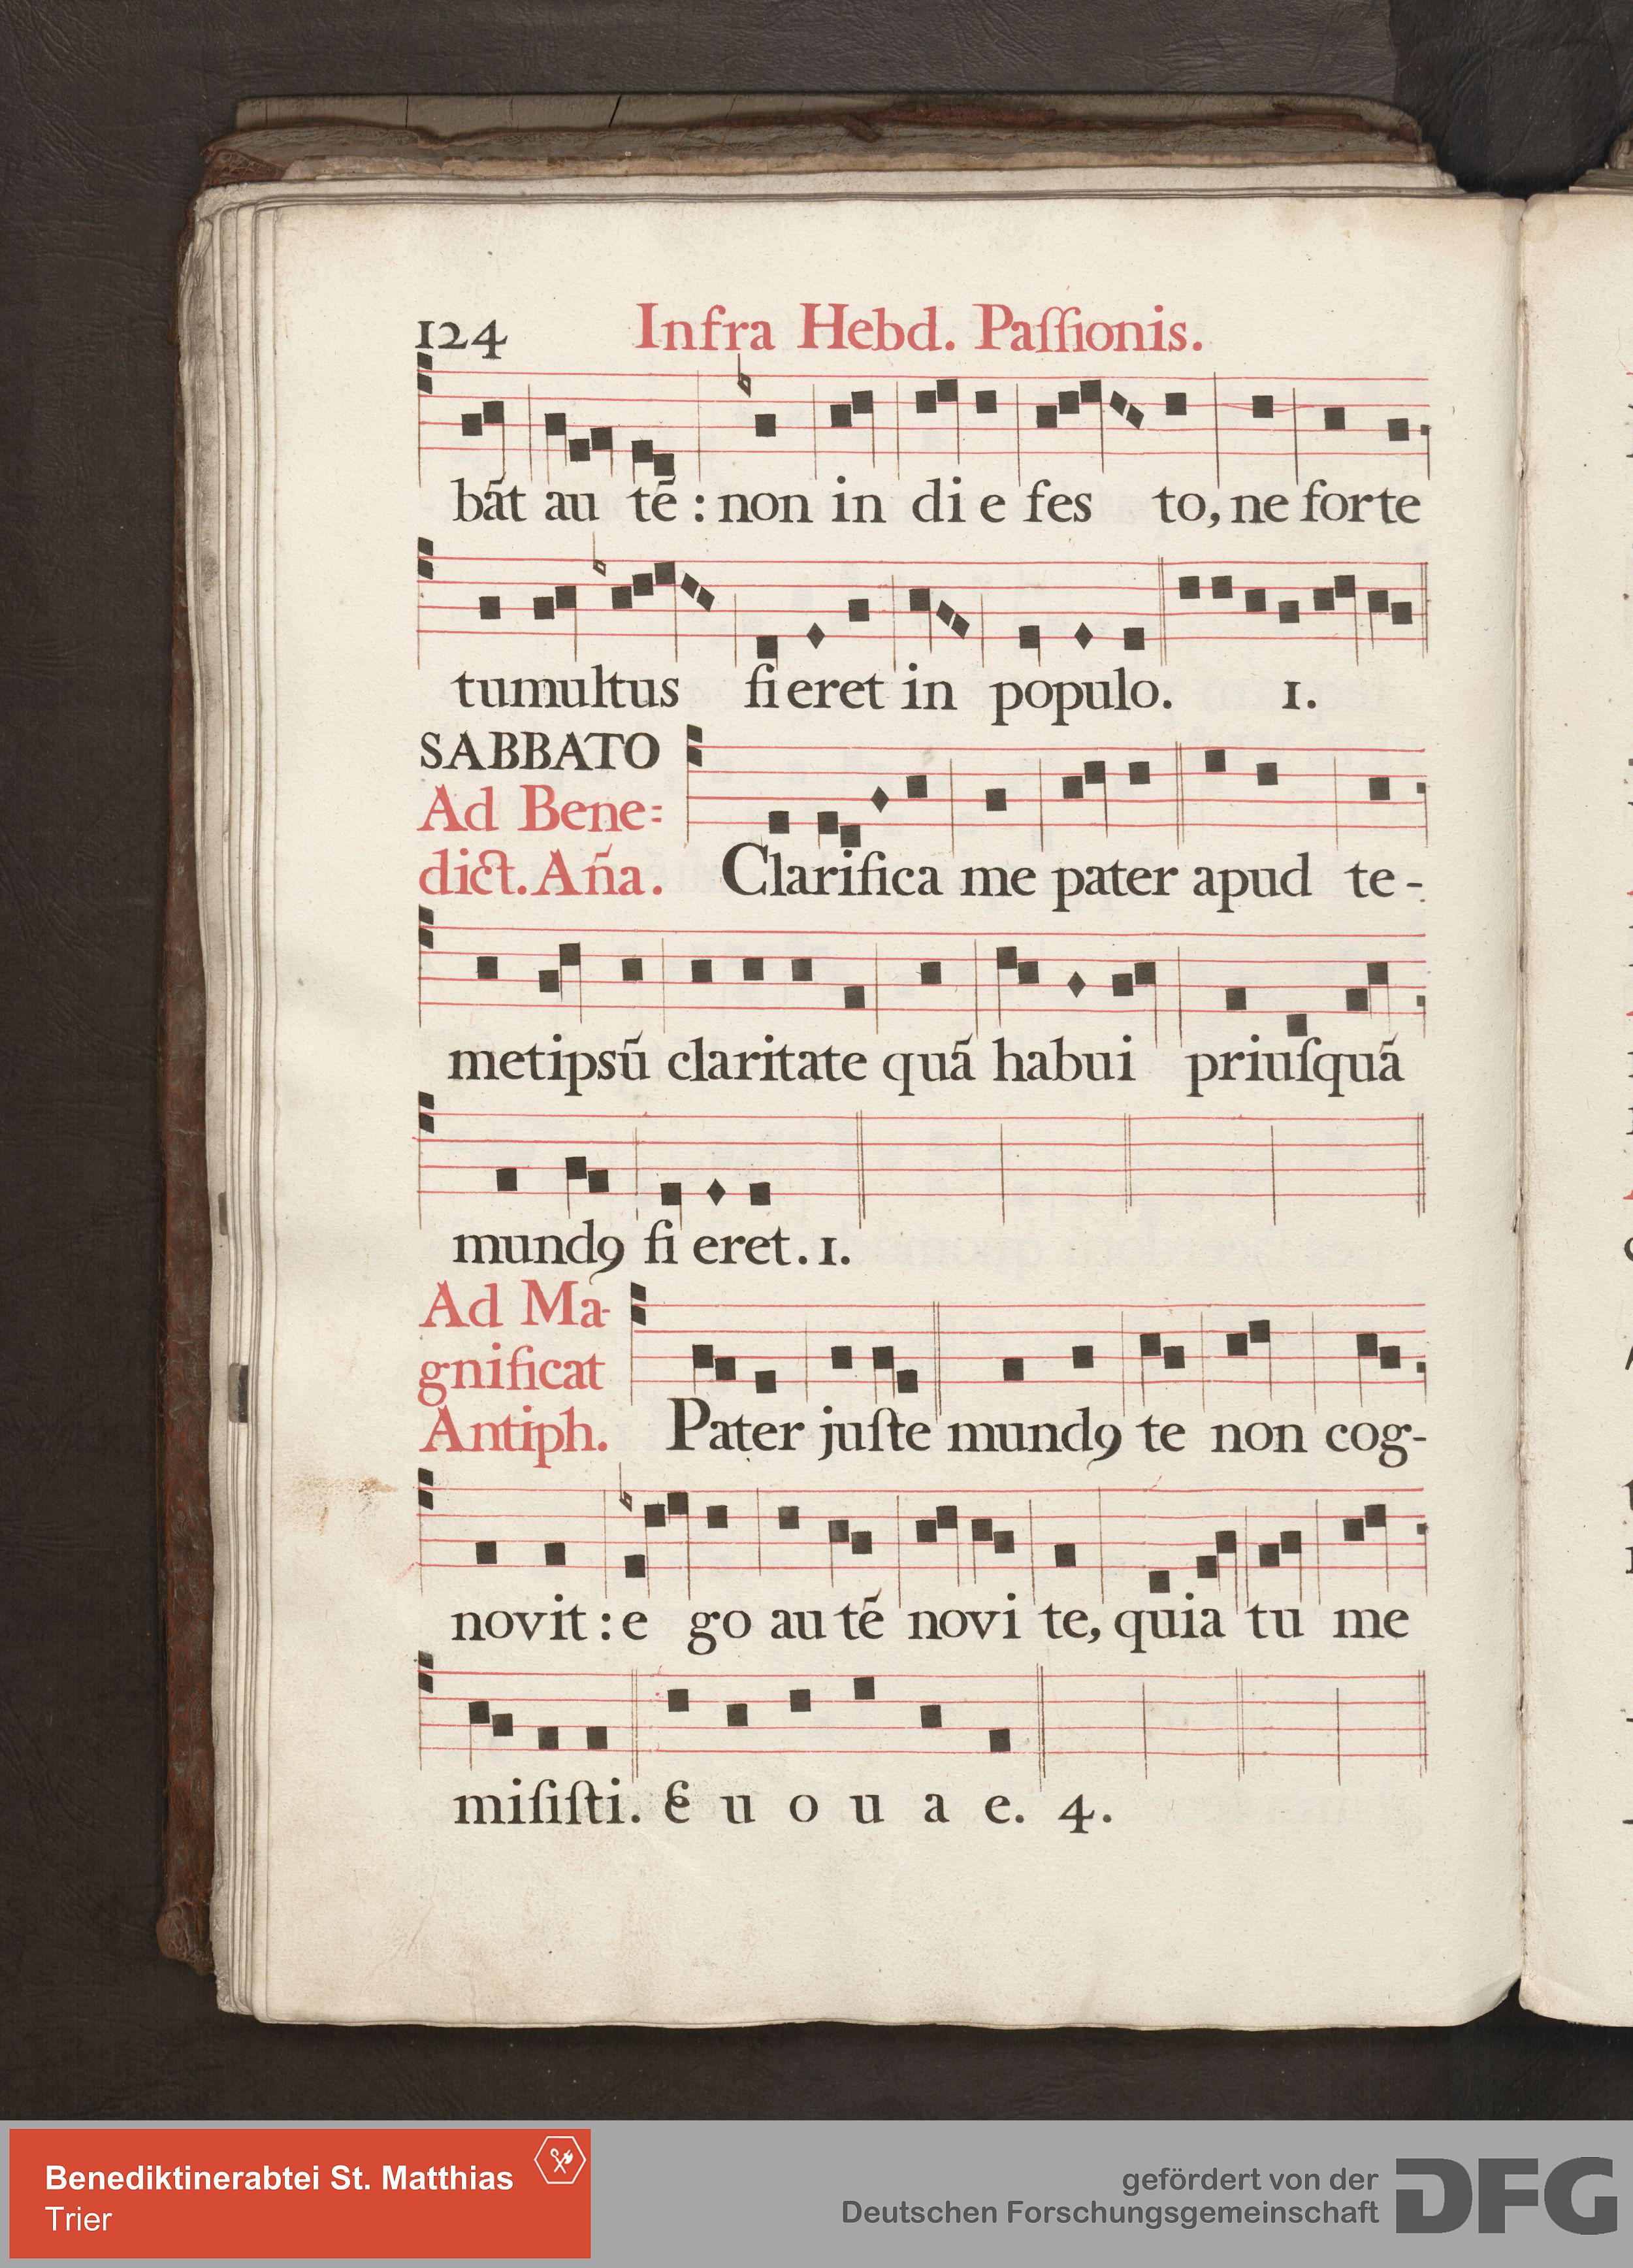 124 Infra Hebd. Paſſionis.
bãt au tẽ : non in di e fes to, ne forte
tumultus fi eret in populo. 1.
SABBATO
Ad Bene=
dict. Aña. Clarifica me pater apud te-
metipsũ claritate quã habui priuſquã
mundꝯ fi eret. 1.
Ad Ma-
gnificat
Antiph. Pater juſte mundꝯ te non cog-
novit : e go au tẽ novi te, quia tu me
miſiſti. E u o u a e. 4.
Benediktinerabtei St. Matthias
Trier
gefördert von der
Deutschen Forschungsgemeinschaft
DFG